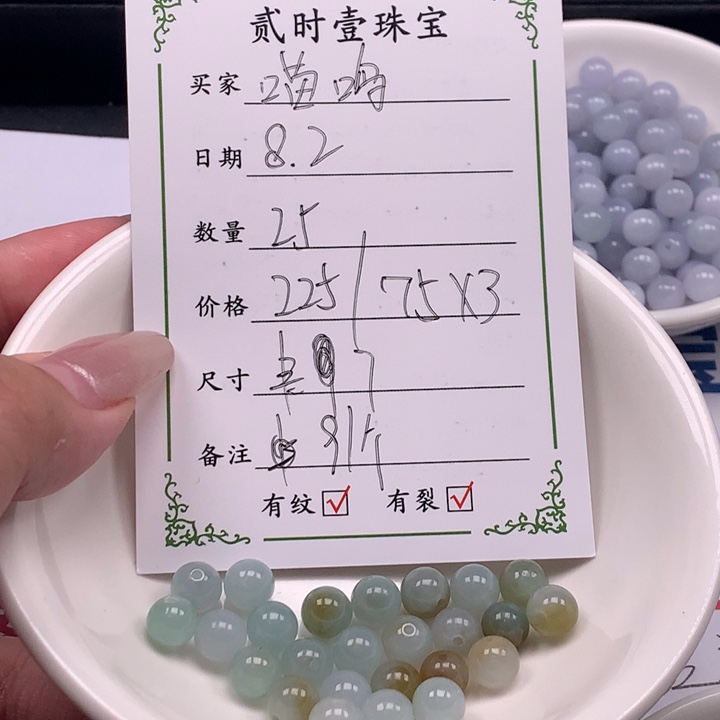 贰时壹珠宝
买家 喵呜
日期 8.2
数量 25
价格 225 75X3
尺寸
备注
有纹 ☑ 有裂 ☑